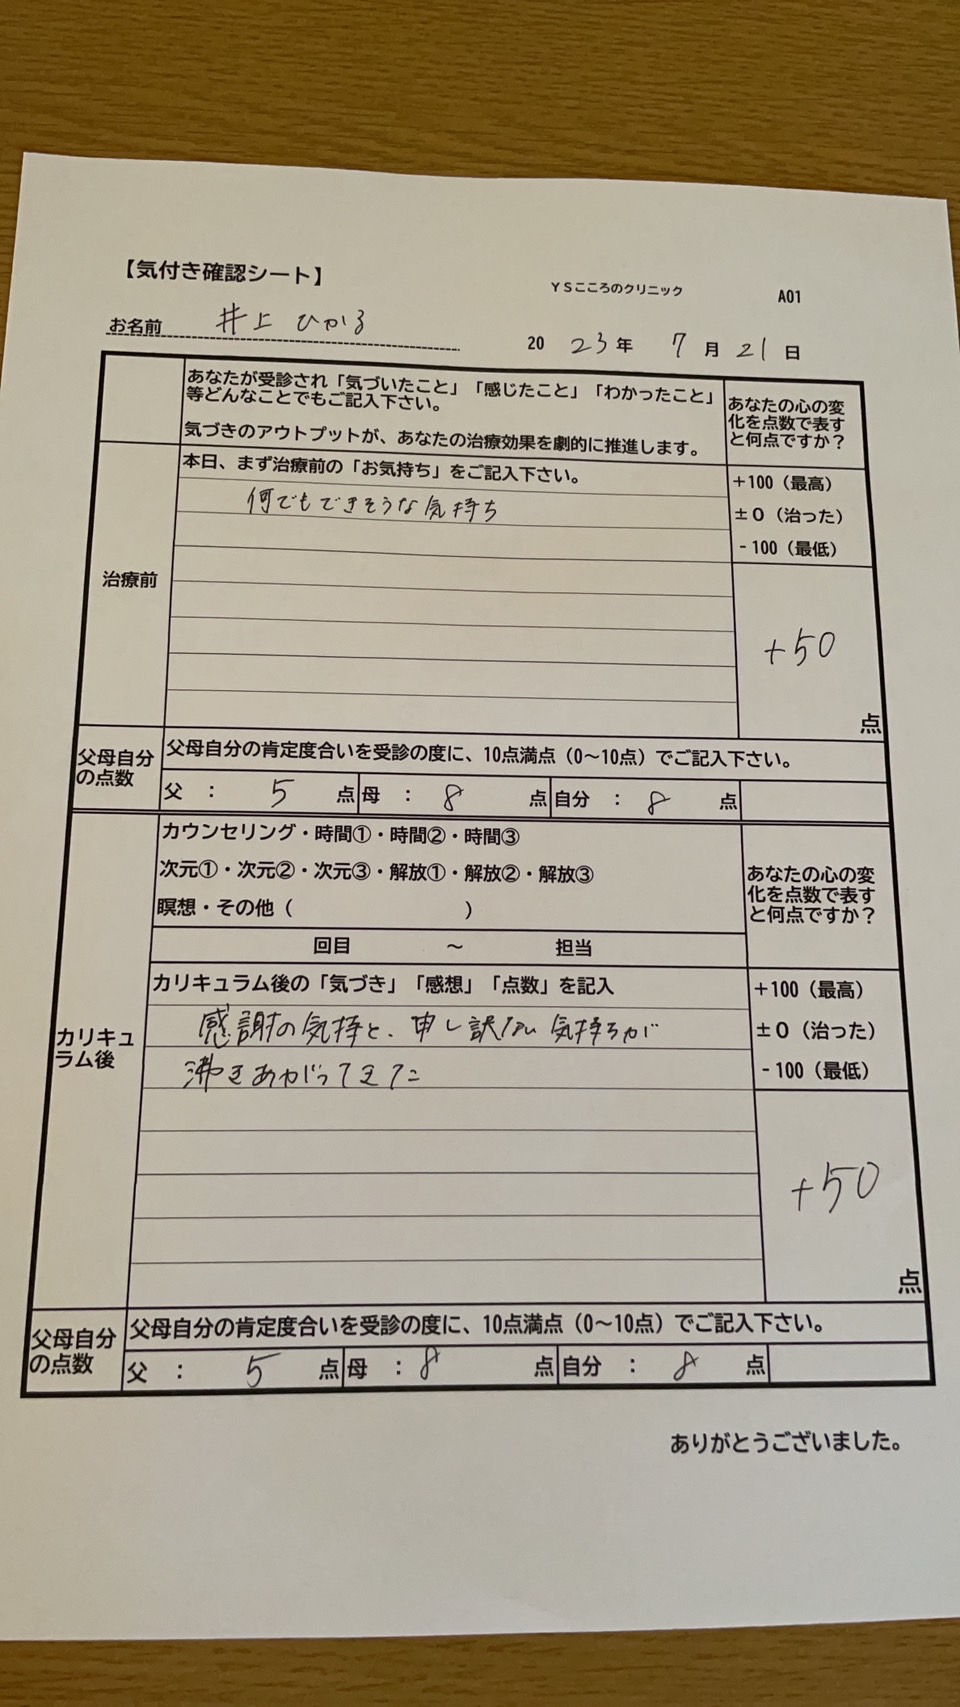 【気付き確認シート】
YSこころのクリニック
A01
お名前 井上 ひかる
2023年 7月21日
あなたが受診され「気づいたこと」「感じたこと」「わかったこと」
等どんなことでもご記入下さい。
気づきのアウトプットが、あなたの治療効果を劇的に推進します。
あなたの心の変
化を点数で表す
と何点ですか？
治療前
本日、まず治療前の「お気持ち」をご記入下さい。
何でもできそうな気持ち
+100（最高）
±0（治った）
-100（最低）
+50
点
父母自分
の点数
父母自分の肯定度合いを受診の度に、10点満点（0～10点）でご記入下さい。
父 ： 5 点 母 ： 8 点 自分 ： 8 点
カリキュ
ラム後
カウンセリング・時間①・時間②・時間③
次元①・次元②・次元③・解放①・解放②・解放③
瞑想・その他（ ）
回目 ～ 担当
あなたの心の変
化を点数で表す
と何点ですか？
カリキュラム後の「気づき」「感想」「点数」を記入
感謝の気持と、申し訳ない気持ちが
沸きあがってきた
+100（最高）
±0（治った）
-100（最低）
+50
点
父母自分
の点数
父母自分の肯定度合いを受診の度に、10点満点（0～10点）でご記入下さい。
父 ： 5 点 母 ： 8 点 自分 ： 8 点
ありがとうございました。